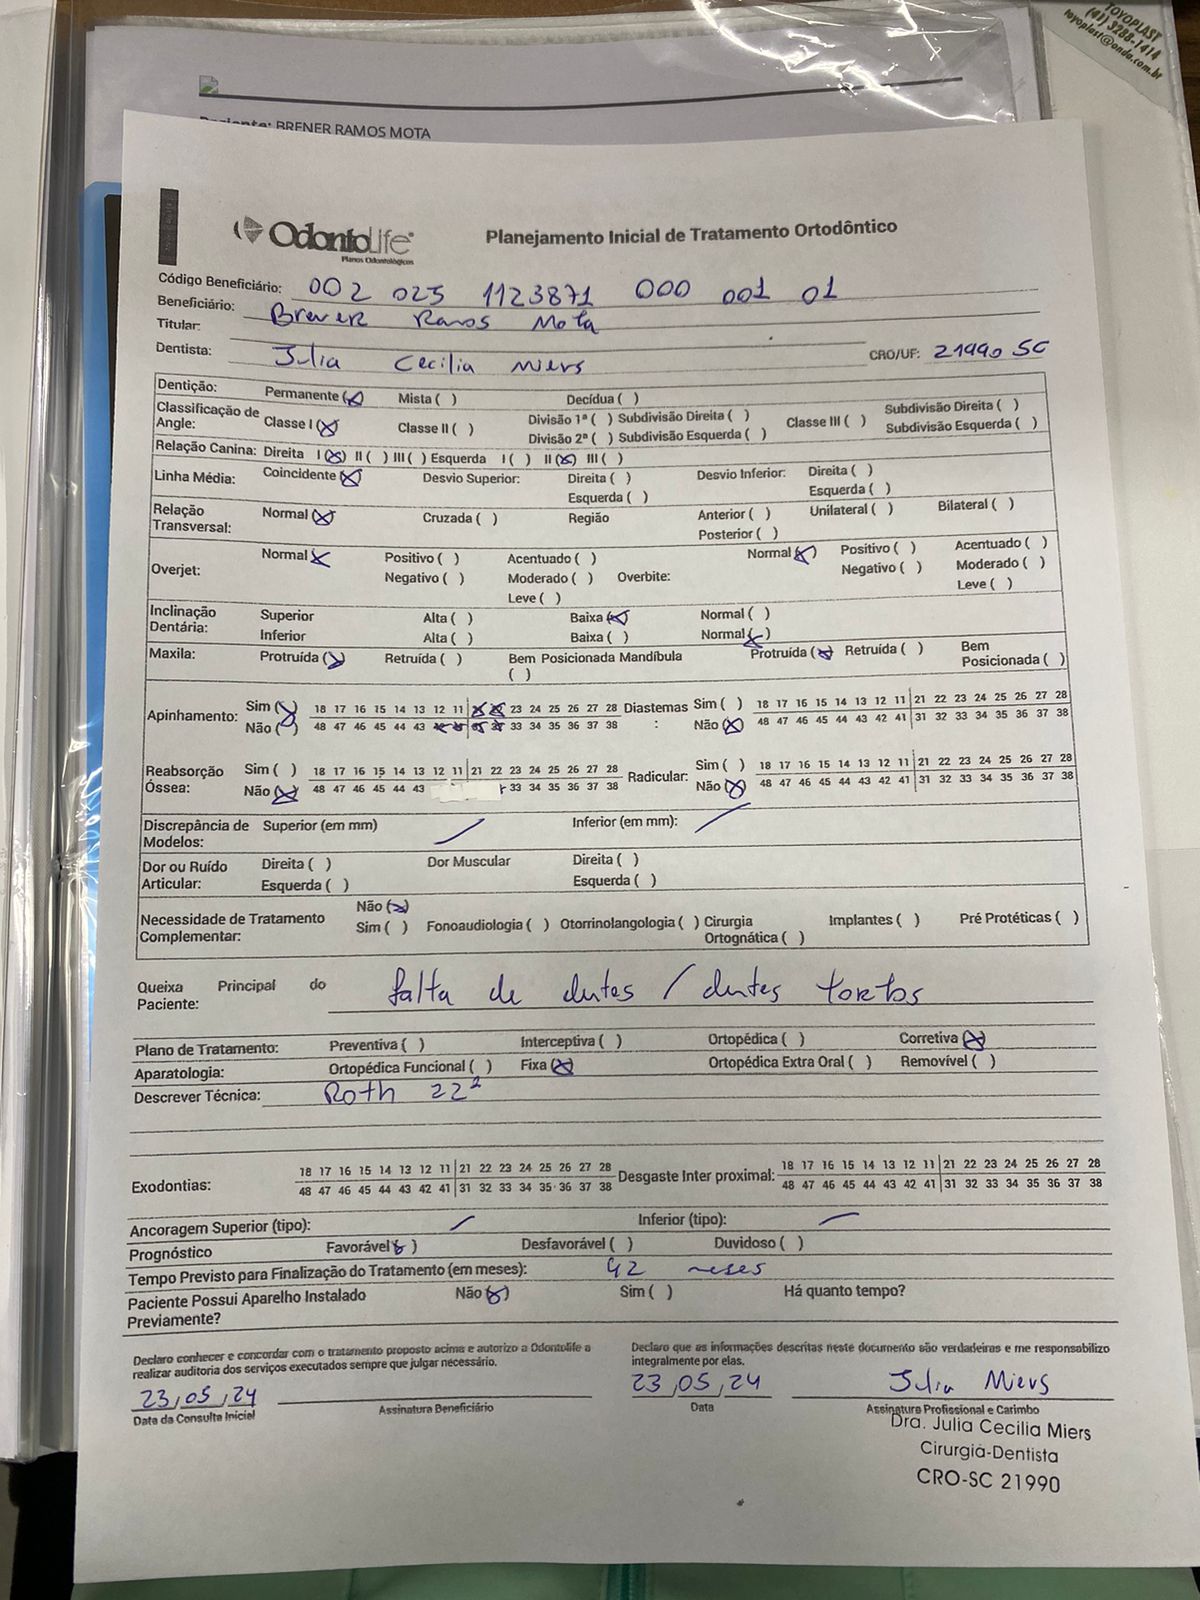 TOYOPLAST
(41) 3288-1414
toyoplast@onda.com.br
Paciente: BRENER RAMOS MOTA
OdontoLife
Planos Odontológicos
Planejamento Inicial de Tratamento Ortodôntico
Código Beneficiário: 002 025 1123871 000 001 01
Beneficiário: Brener Ramos Mota
Titular:
Dentista: Julia Cecilia Miers CRO/UF: 21990 SC
Dentição: Permanente (X) Mista ( ) Decídua ( )
Classificação de Angle: Classe I (X) Classe II ( ) Divisão 1ª ( ) Subdivisão Direita ( ) Classe III ( ) Subdivisão Direita ( )
Divisão 2ª ( ) Subdivisão Esquerda ( ) Subdivisão Esquerda ( )
Relação Canina: Direita I (X) II ( ) III ( ) Esquerda I ( ) II (X) III ( )
Linha Média: Coincidente (X) Desvio Superior: Direita ( ) Desvio Inferior: Direita ( )
Esquerda ( ) Esquerda ( )
Relação Transversal: Normal (X) Cruzada ( ) Região Anterior ( ) Unilateral ( ) Bilateral ( )
Posterior ( )
Normal (X) Positivo ( ) Acentuado ( ) Normal (X) Positivo ( ) Acentuado ( )
Overjet: Negativo ( ) Moderado ( ) Overbite: Negativo ( ) Moderado ( )
Leve ( ) Leve ( )
Inclinação Dentária: Superior Alta ( ) Baixa (X) Normal ( )
Inferior Alta ( ) Baixa ( ) Normal (X)
Maxila: Protruída (X) Retruída ( ) Bem Posicionada ( ) Mandíbula Protruída (X) Retruída ( ) Bem Posicionada ( )
Apinhamento: Sim (X) 18 17 16 15 14 13 12 11 X X 23 24 25 26 27 28 Diastemas: Sim ( ) 18 17 16 15 14 13 12 11 21 22 23 24 25 26 27 28
Não ( ) 48 47 46 45 44 43 X X X X 33 34 35 36 37 38 Não (X) 48 47 46 45 44 43 42 41 31 32 33 34 35 36 37 38
Reabsorção Óssea: Sim ( ) 18 17 16 15 14 13 12 11 21 22 23 24 25 26 27 28 Radicular: Sim ( ) 18 17 16 15 14 13 12 11 21 22 23 24 25 26 27 28
Não (X) 48 47 46 45 44 43 33 34 35 36 37 38 Não (X) 48 47 46 45 44 43 42 41 31 32 33 34 35 36 37 38
Discrepância de Modelos: Superior (em mm) / Inferior (em mm): /
Dor ou Ruído Articular: Direita ( ) Dor Muscular Direita ( )
Esquerda ( ) Esquerda ( )
Necessidade de Tratamento Complementar: Não (X)
Sim ( ) Fonoaudiologia ( ) Otorrinolangologia ( ) Cirurgia Ortognática ( ) Implantes ( ) Pré Protéticas ( )
Queixa Principal do Paciente: falta de dentes / dentes tortos
Plano de Tratamento: Preventiva ( ) Interceptiva ( ) Ortopédica ( ) Corretiva (X)
Aparatologia: Ortopédica Funcional ( ) Fixa (X) Ortopédica Extra Oral ( ) Removível ( )
Descrever Técnica: Roth 22²
Exodontias: 18 17 16 15 14 13 12 11 21 22 23 24 25 26 27 28 Desgaste Inter proximal: 18 17 16 15 14 13 12 11 21 22 23 24 25 26 27 28
48 47 46 45 44 43 42 41 31 32 33 34 35 36 37 38 48 47 46 45 44 43 42 41 31 32 33 34 35 36 37 38
Ancoragem Superior (tipo): / Inferior (tipo): /
Prognóstico Favorável (X) Desfavorável ( ) Duvidoso ( )
Tempo Previsto para Finalização do Tratamento (em meses): 42 meses
Paciente Possui Aparelho Instalado Previamente? Não (X) Sim ( ) Há quanto tempo?
Declaro conhecer e concordar com o tratamento proposto acima e autorizo a Odontolife a
realizar auditoria dos serviços executados sempre que julgar necessário.
Declaro que as informações descritas neste documento são verdadeiras e me responsabilizo
integralmente por elas.
23/05/24 23/05/24 Julia Miers
Data da Consulta Inicial Assinatura Beneficiário Data Assinatura Profissional e Carimbo
Dra. Julia Cecilia Miers
Cirurgiã-Dentista
CRO-SC 21990